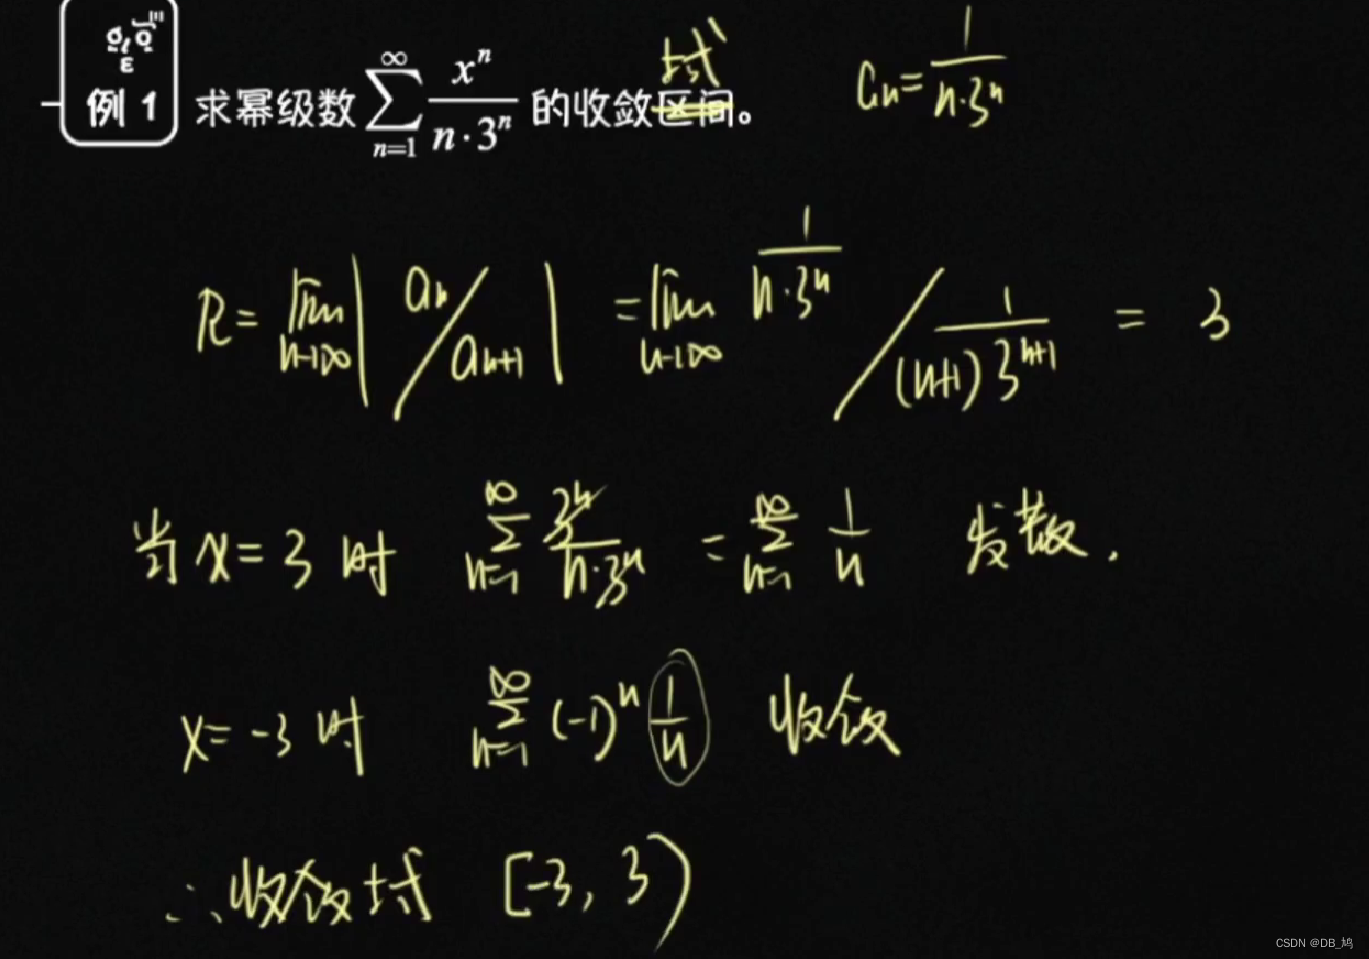 例 1 求幂级数 $\sum_{n=1}^{\infty} \frac{x^n}{n \cdot 3^n}$ 的收敛区间。 域 $a_n = \frac{1}{n \cdot 3^n}$
$R = \lim_{n \to \infty} \left| a_n / a_{n+1} \right| = \lim_{n \to \infty} \frac{1}{n \cdot 3^n} / \frac{1}{(n+1) 3^{n+1}} = 3$
当 $x = 3$ 时 $\sum_{n=1}^{\infty} \frac{3^n}{n \cdot 3^n} = \sum_{n=1}^{\infty} \frac{1}{n}$ 发散.
$x = -3$ 时 $\sum_{n=1}^{\infty} (-1)^n \frac{1}{n}$ 收敛
∴ 收敛域 $[-3, 3)$
CSDN @DB_鸠